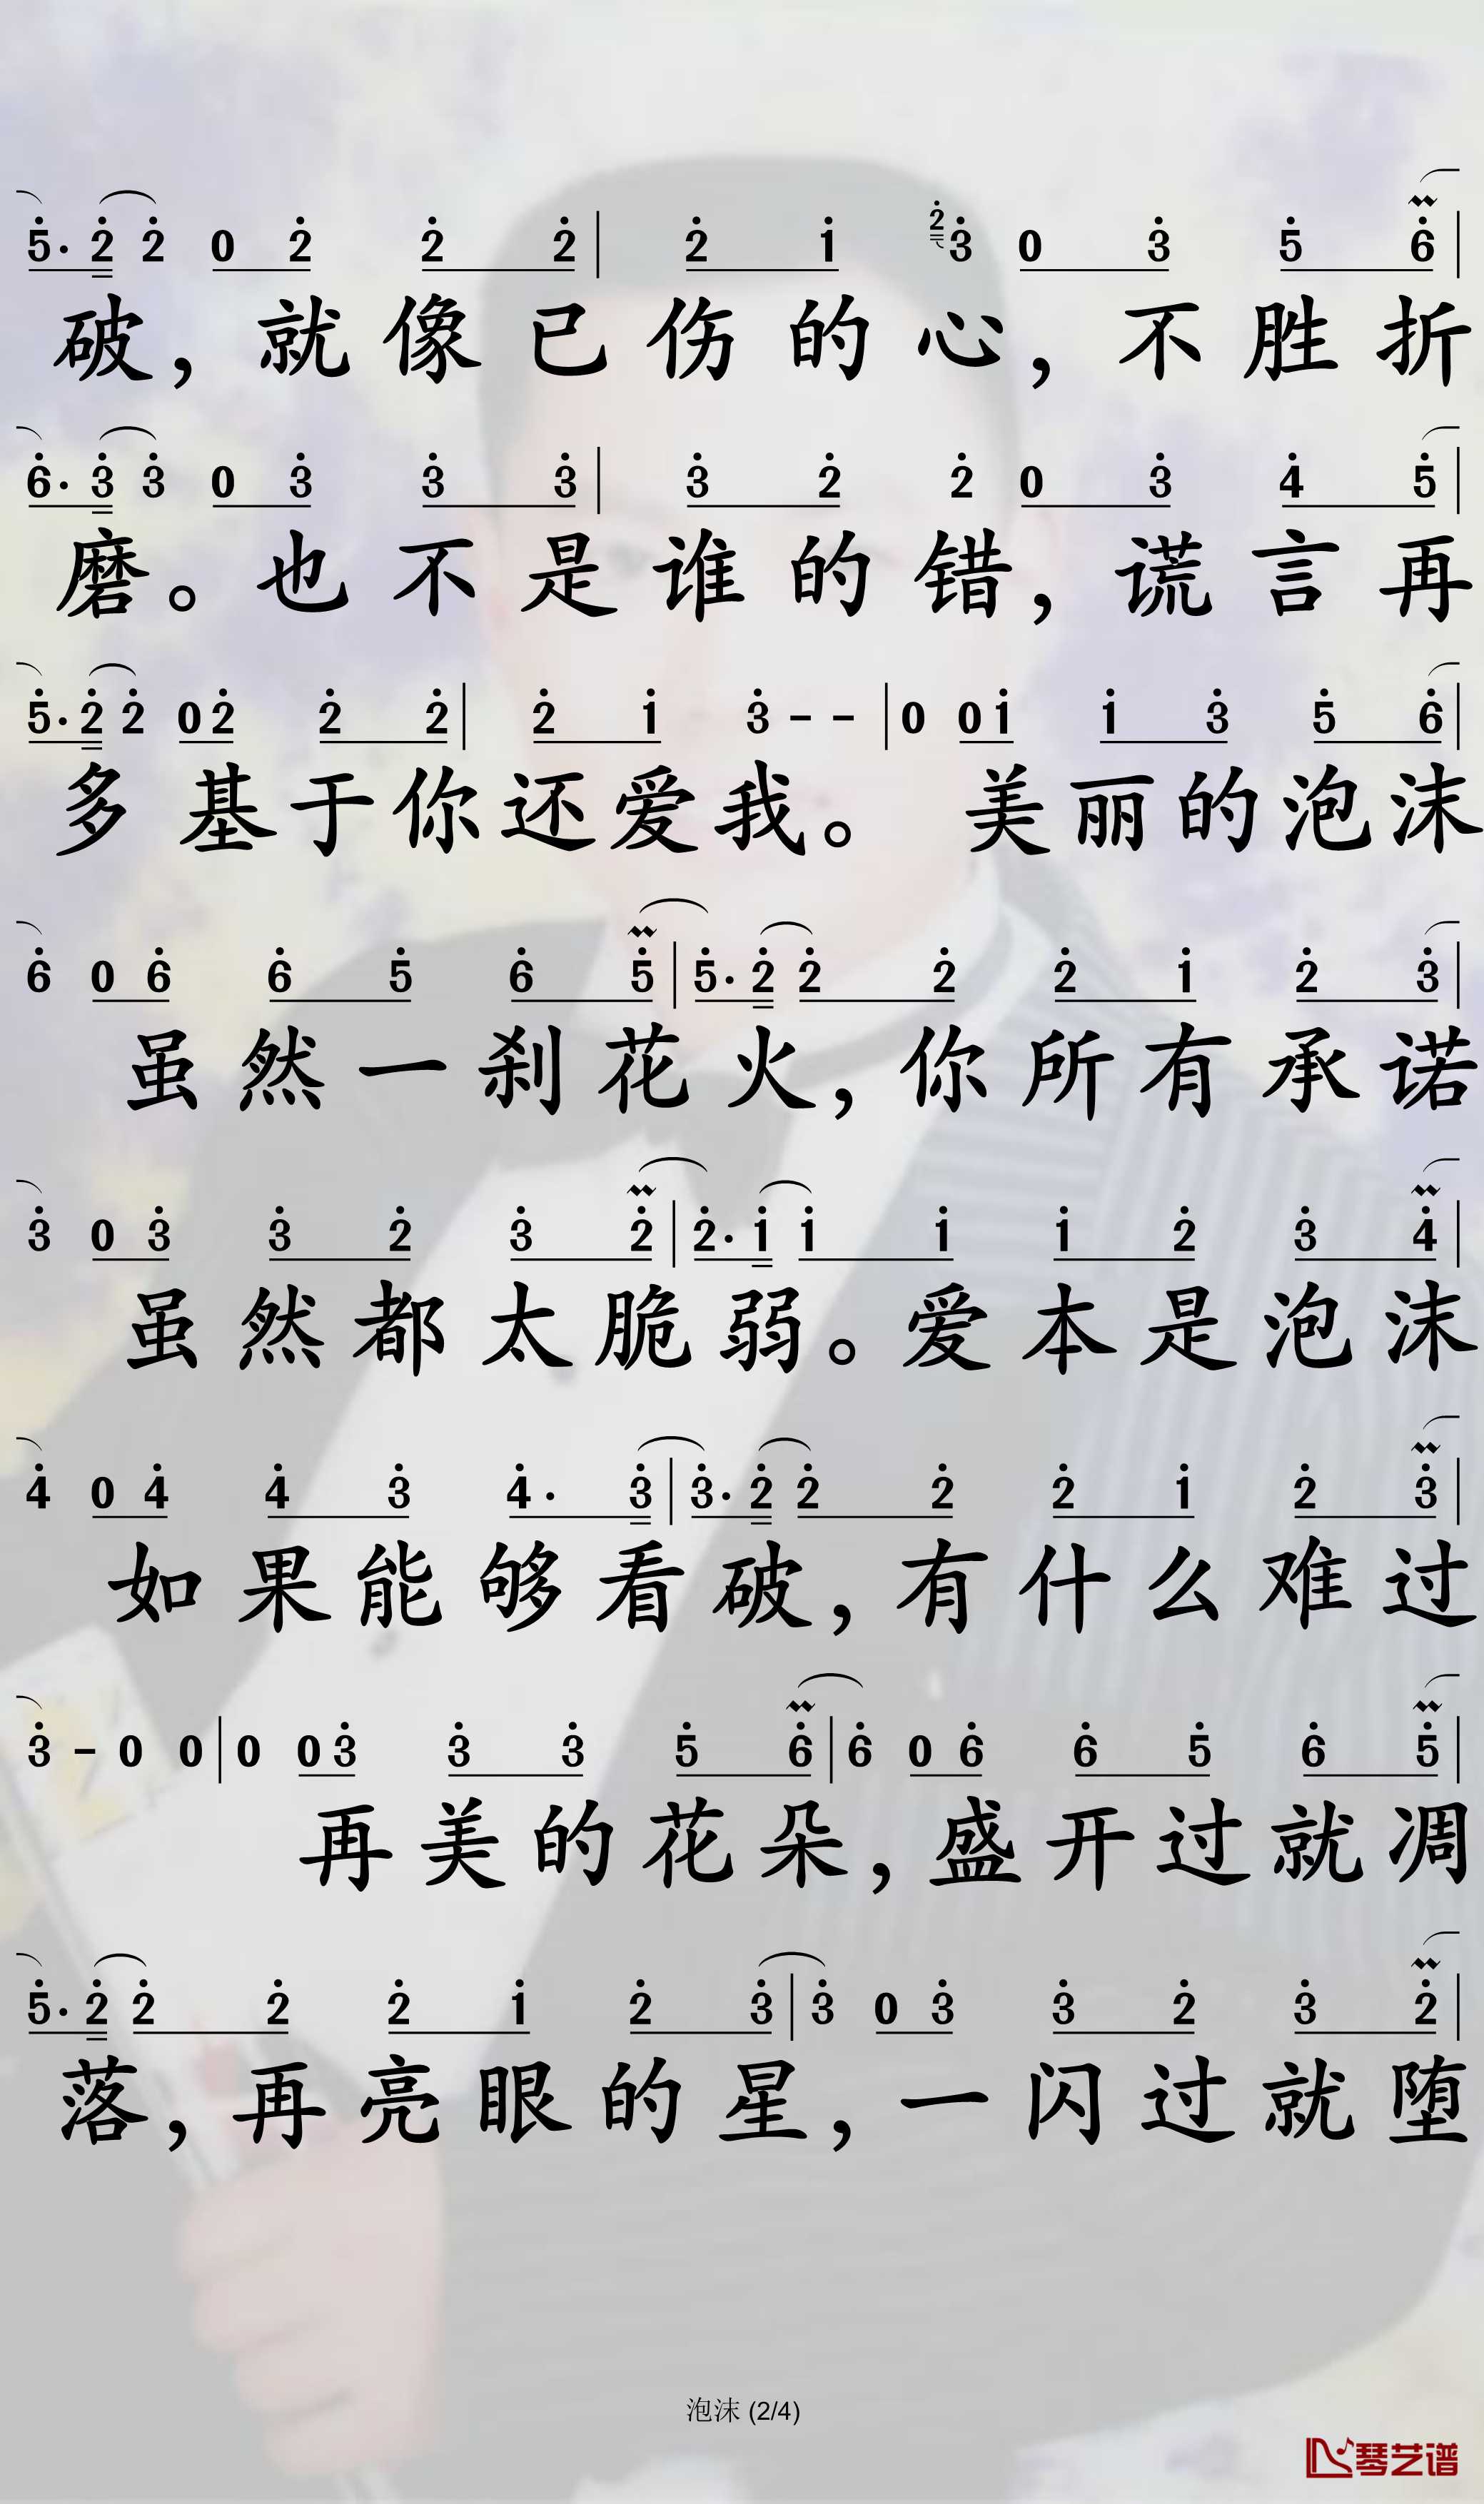 5·2 2 0 2 2 2 | 2 1 2 3 0 3 5 6 |
破，就像已伤的心，不胜折
6·3 3 0 3 3 3 | 3 2 2 0 3 4 5 |
磨。也不是谁的错，谎言再
5·2 2 0 2 2 2 | 2 1 3 - - | 0 0 1 1 3 5 6 |
多基于你还爱我。 美丽的泡沫
6 0 6 6 5 6 5 | 5·2 2 2 2 1 2 3 |
虽然一刹花火，你所有承诺
3 0 3 3 2 3 2 | 2·1 1 1 1 2 3 4 |
虽然都太脆弱。爱本是泡沫
4 0 4 4 3 4· 3 | 3·2 2 2 2 1 2 3 |
如果能够看破，有什么难过
3 - 0 0 | 0 0 3 3 3 5 6 | 6 0 6 6 5 6 5 |
再美的花朵，盛开过就凋
5·2 2 2 2 1 2 3 | 3 0 3 3 2 3 2 |
落，再亮眼的星，一闪过就堕
泡沫 (2/4)
琴艺谱